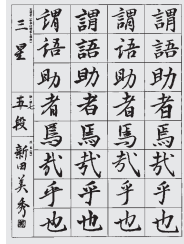 謂語助者焉哉乎也
謂語助者焉哉乎也
謂語助者焉哉乎也
謂語助者焉哉乎也
三星 五段 新田美秀